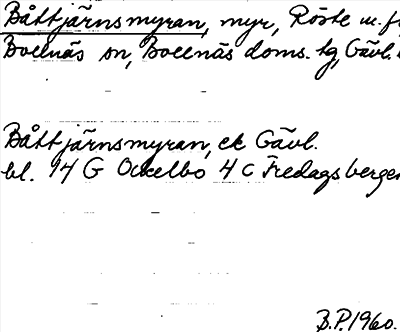 Båttjärnsmyran, myr, Röste u. f
Bollnäs sn, Bollnäs doms. tg, Gävl.
Båttjärnsmyran, ek Gävl.
bl. 14 G Ockelbo 4 c Fredagsbergen
B.P. 1960.